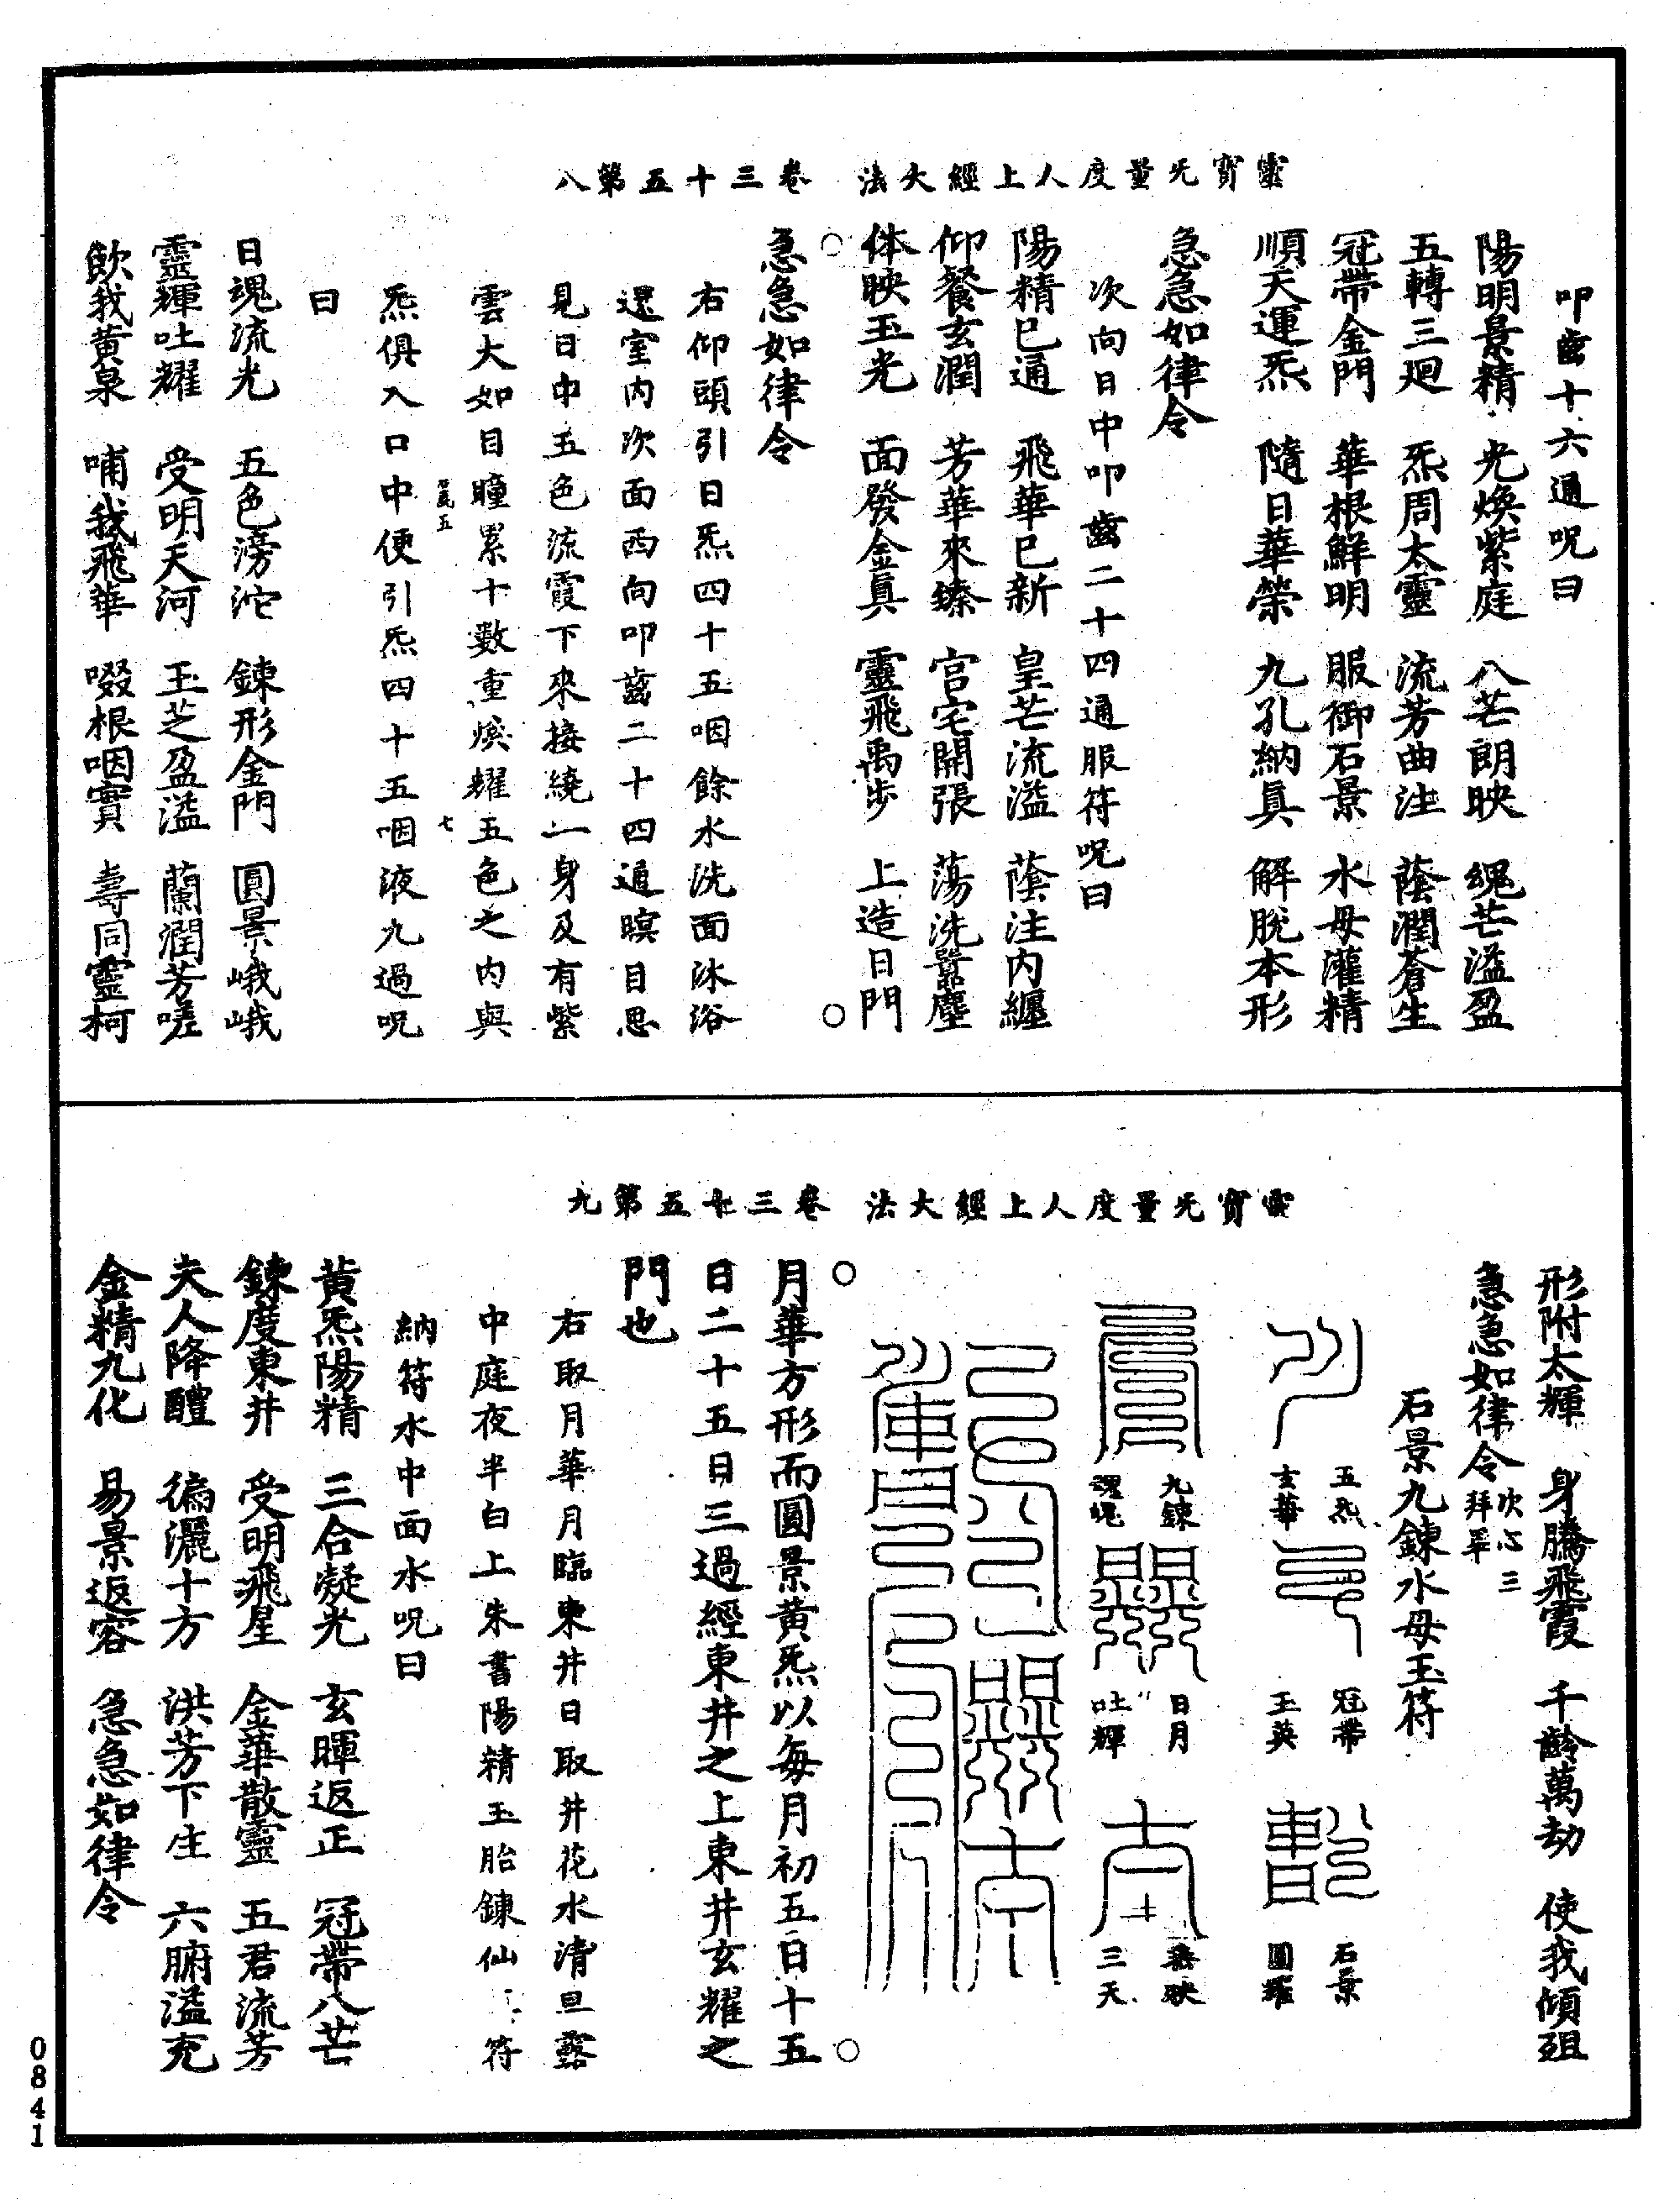 靈寶无量度人上經大法　卷三十五第八
叩齒十六通呪曰
陽明景精　光煥紫庭　八芒朗映　䰟芒溢盈
五轉三廻　炁周太靈　流芳曲注　蔭潤蒼生
冠帶金門　華根鮮明　服御石景　水母灌精
順天運炁　隨日華榮　九孔納眞　解脫本形
急急如律令
次向日中叩齒二十四通服符呪曰
陽精已通　飛華已新　皇芒流溢　蔭注内纏
仰餐玄潤　芳華來臻　宫宅開張　蕩洗嚣塵
体映玉光　面發金眞　靈飛禹步　上造日門
急急如律令
右仰頭引日炁四十五咽餘水洗面沐浴
還室内次面西向叩齒二十四通瞑目思
見日中五色流霞下來接繞一身及有紫
雲大如目瞳累十數重煥耀五色之内與
五　七
炁俱入口中便引炁四十五咽液九過呪
曰
日魂流光　五色滂沱　鍊形金門　圓景峨峨
靈輝吐耀　受明天河　玉芝盈溢　蘭潤芳嗟
飲我黄泉　哺我飛華　啜根咽實　壽同靈柯
靈寶无量度人上經大法　卷三十五第九
形附太輝　身騰飛霞　千齡萬劫　使我傾徂
急急如律令　次心三拜畢
石景九鍊水母玉符
五炁玄華　冠帶玉英　石景圓耀
九鍊魂䰟　日月吐輝　三天
月華方形而圓景黄炁以每月初五日十五
日二十五日三過經東井之上東井玄耀之
門也
右取月華月臨東井日取井花水清旦露
中庭夜半白上朱書陽精玉胎鍊仙符
納符水中面水呪曰
黄炁陽精　三合凝光　玄暉返正　冠帶八芒
鍊度東井　受明飛星　金華散靈　五君流芳
夫人降醴　徧灑十方　洪芳下生　六腑溢充
金精九化　易景返容　急急如律令
0841